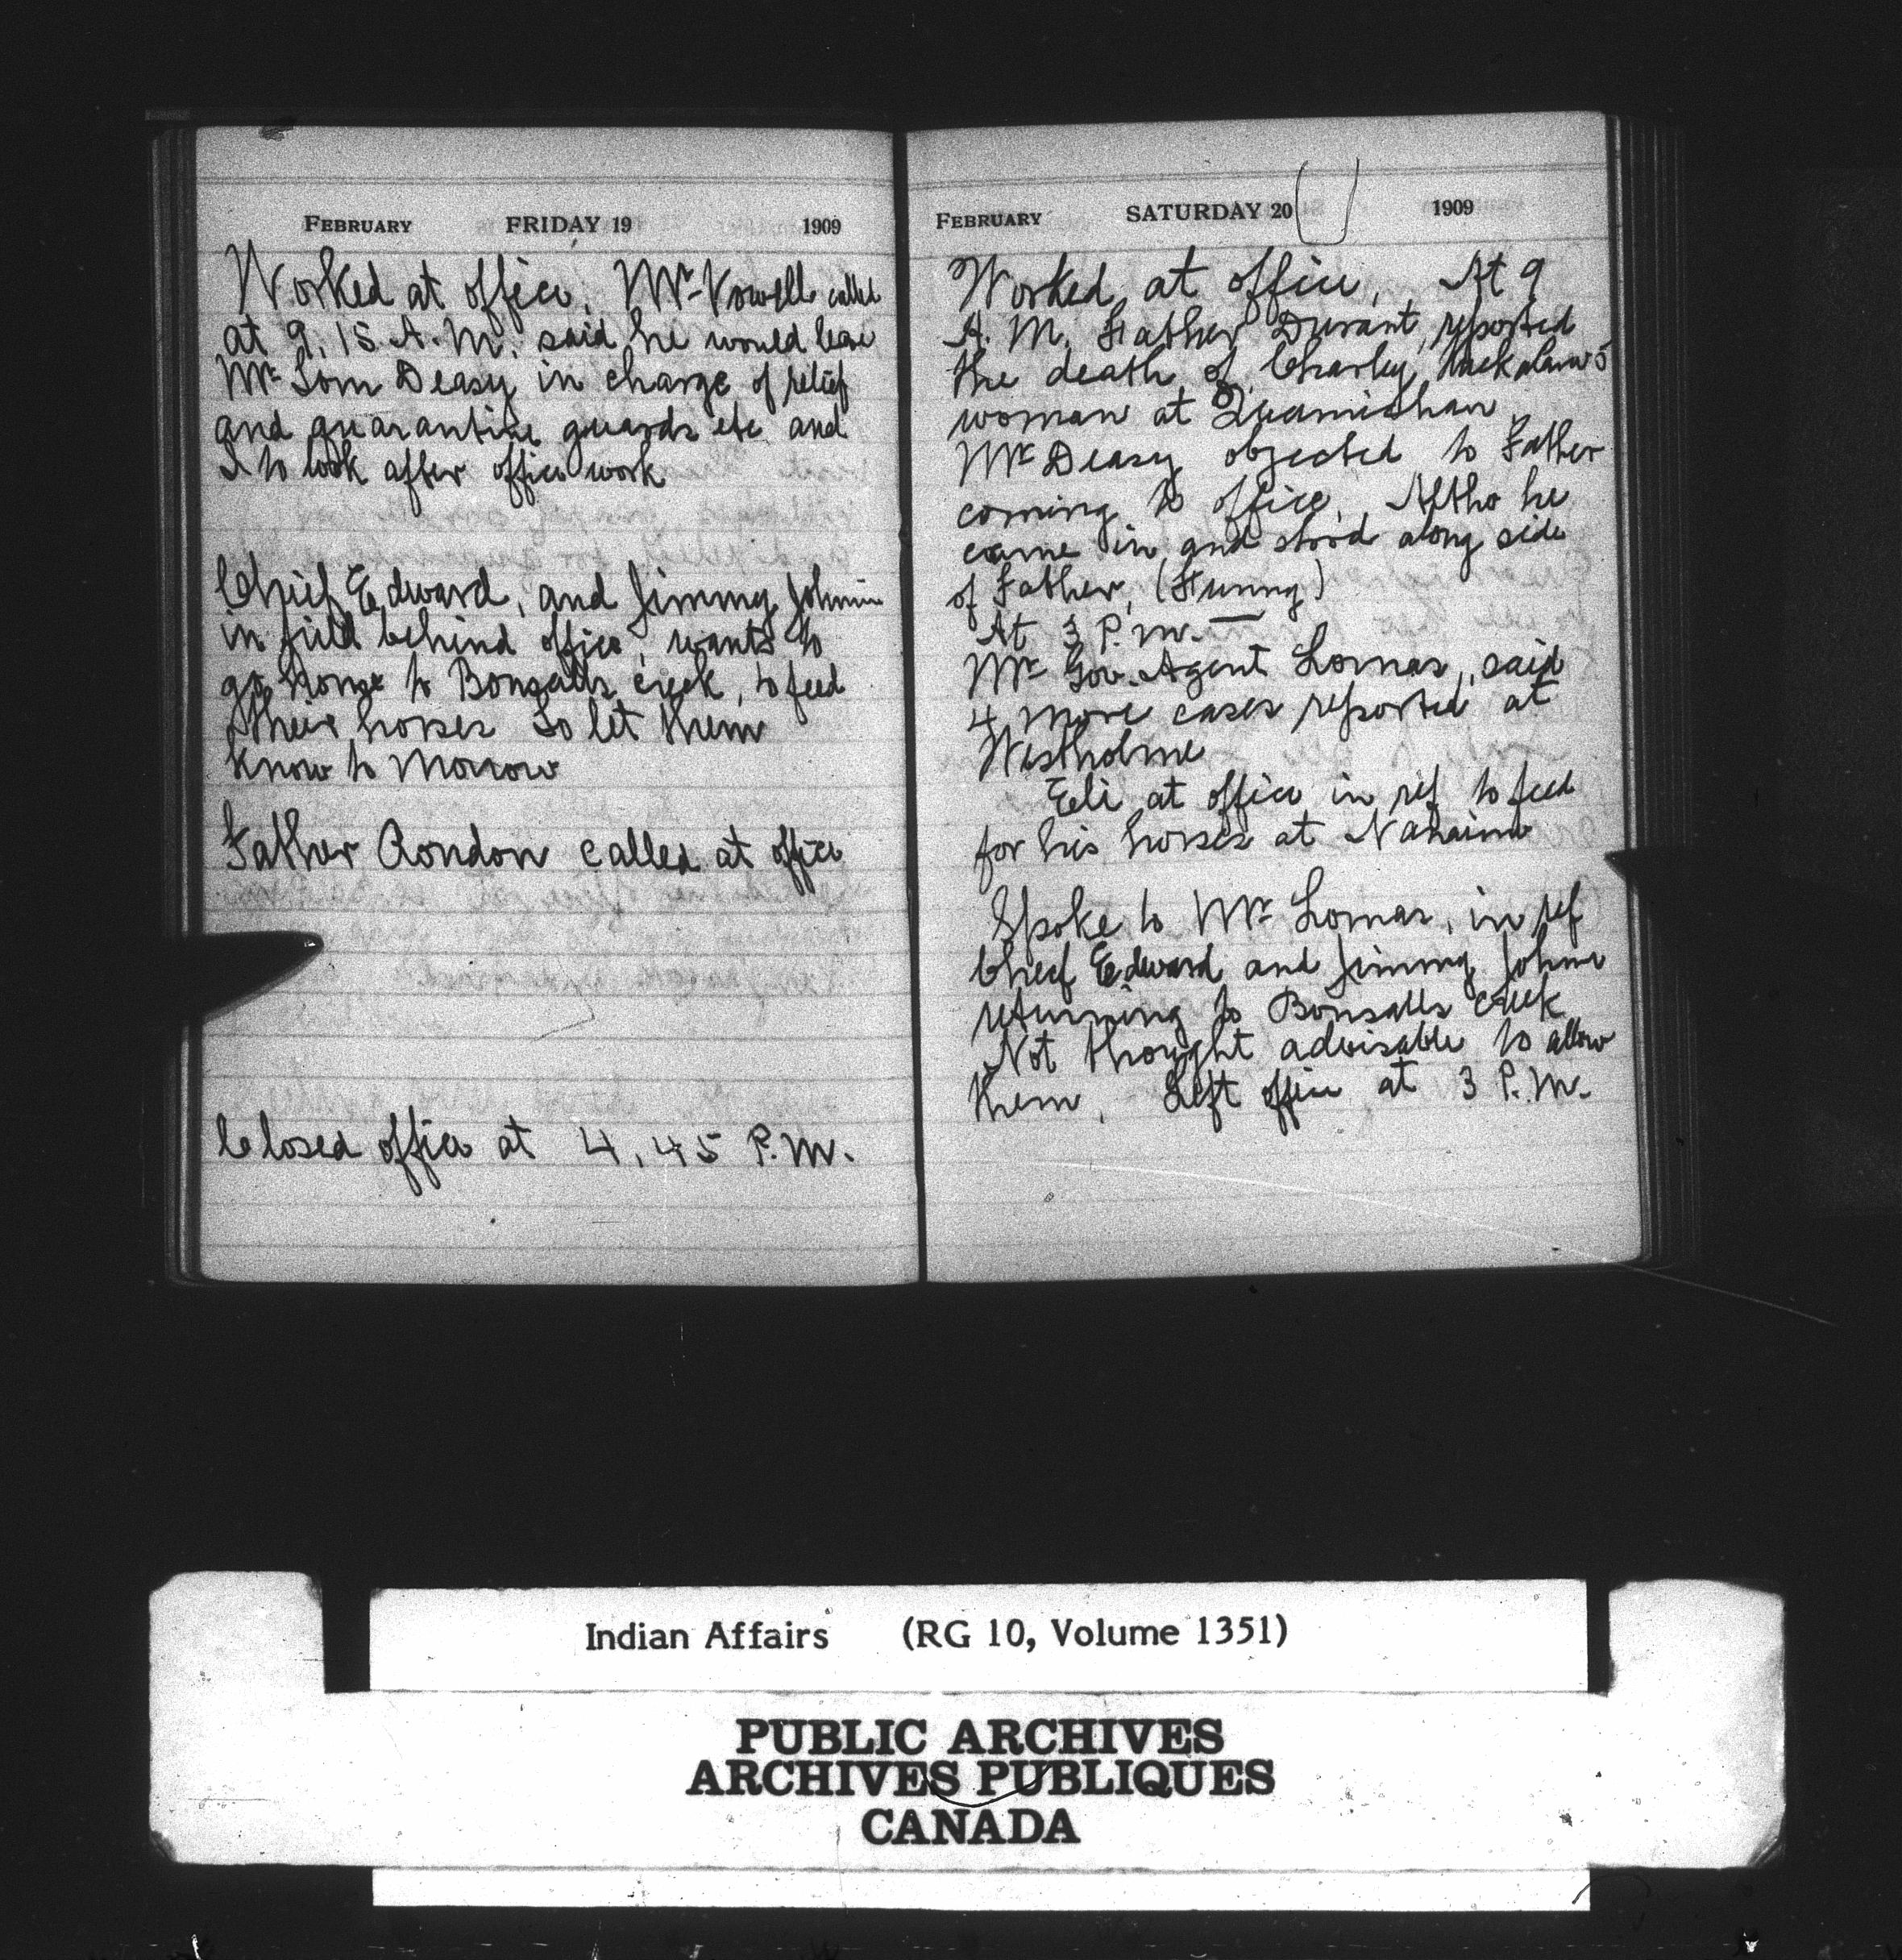 FEBRUARY FRIDAY 19 1909
Worked at office, Mr Vowell called
at 9.15 A.M. said he would leave
Mr Tom Deasy in charge of relief
and quarantine guards etc and
I to look after office work
Chief Edward, and Jimmy Johnnie
in field behind office, wants to
go home to Bonsalls creek, to feed
their horses to let them
know to Morrow
Father Rondon called at office
Closed office at 4.45 P.M.
FEBRUARY SATURDAY 20 1909
Worked at office, At 9
A.M. Father Durant, reported
the death of Charley
woman at Quamichan
Mr Deasy objected to Father
coming to office, Altho he
came in and stood along side
of Father, (Funny)
At 3 P.M. —
Mr Gov. Agent Lomas, said
4 more cases reported at
Westholme
Eli at office in ref to feed
for his horses at Nanaimo
Spoke to Mr Lomas, in ref
Chief Edward and Jimmy Johnie
returning to Bonsalls creek
Not thought advisable to allow
them, Left office at 3 P.M.
Indian Affairs (RG 10, Volume 1351)
PUBLIC ARCHIVES
ARCHIVES PUBLIQUES
CANADA